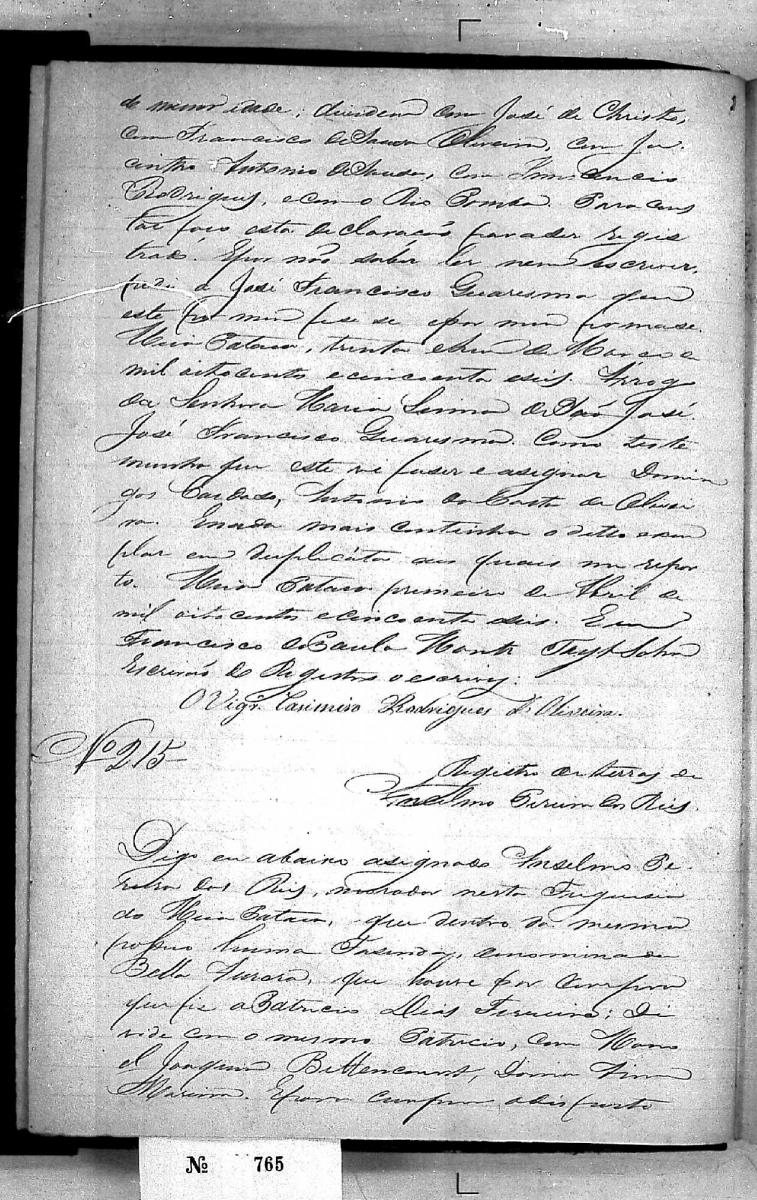 de menor idade; dividem com José de Christo,
com Francisco de Sousa Oliveira, com Ja-
cintho Antonio de Sousa, com Innocencio
Rodrigues, e com o Rio Pomba. Para cons
tar faço esta declaração para ser regis
trado. E por não saber ler nem escrever,
pedi a José Francisco Guaresma que
este por mim fisese e por mim
Meia Pataca, trinta e hum de Março de
mil oitocentos e cincoenta e seis. Arrogo
da Senhora Maria de São José
José Francisco Guaresma. Como teste
munha que este vi faser e asignar Domin
gos Cardoso, Antonio da Costa de Olivei
ra. E nada mais continha o ditto exem
plar em duplicata aos quais me repor
to. Meia Pataca primeiro de Abril de
mil oitocentos e cincoenta e seis. Eu
Francisco de Paula
Escrivão do Registro o escrevy.
O Vigr.º Casimiro Rodrigues d'Oliveira.
Nº 215
Registro de terras de
Anselmo Pereira dos Reis.
Digo eu abaixo asignado Anselmo Pe-
reira dos Reis, morador nesta Freguesia
do Meia Pataca, que dentro da mesma
possuo huma Fasenda, denominada
Bella Aurora, que houve por compra
que fis a Patricio Dias Ferreira: Di
vide com o mesmo Patricio, com Mano
el Joaquim Bettencourt, Donna Anna
Maxima. E para cumprir o disposto
Nº 765